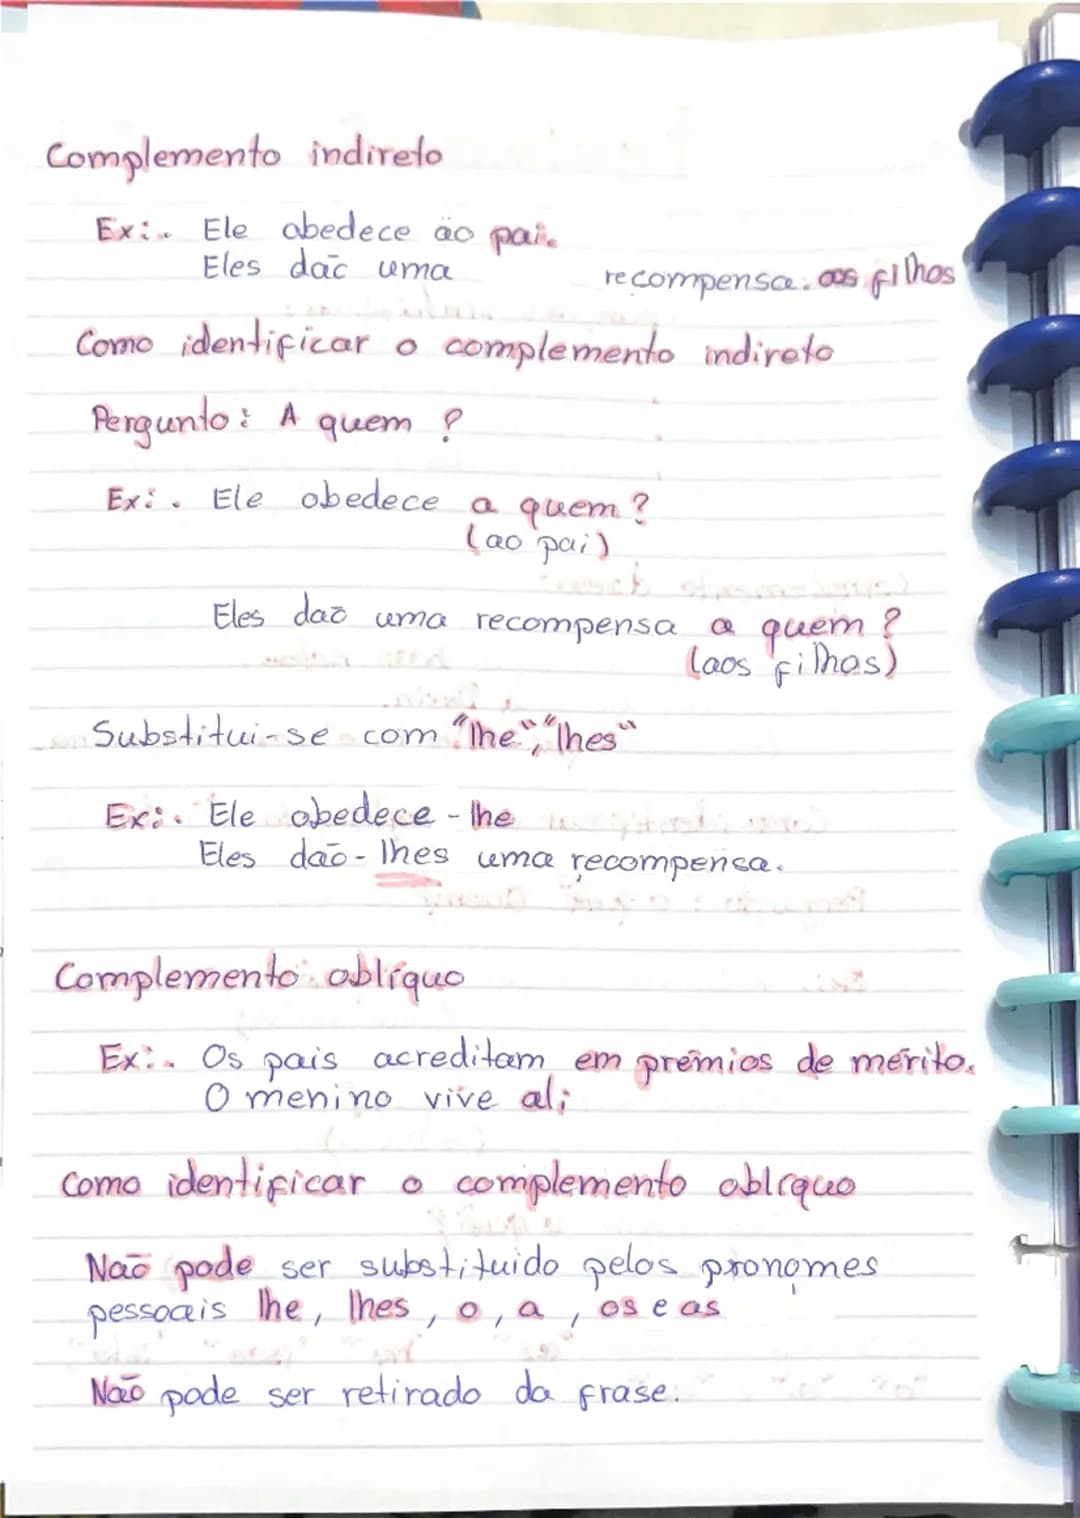 Complemento indireto
Ex:. Ele obedece ao pai.
Eles dão uma recompensa. aos filhos
Como identificar o complemento indireto
Pergunto: A quem ?
Ex:. Ele obedece a quem?
(ao pai)
Eles dão uma recompensa a quem?
(aos filhos)
Substitui-se com "lhe", "lhes"
Ex:. Ele obedece-lhe
Eles dão-lhes uma recompensa.
Complemento oblíquo
Ex:. Os pais acreditam em prémios de mérito.
O menino vive ali
Como identificar o complemento oblíquo
Não pode ser substituído pelos pronomes
pessoais lhe, lhes, o, a, os e as
Não pode ser retirado da frase.